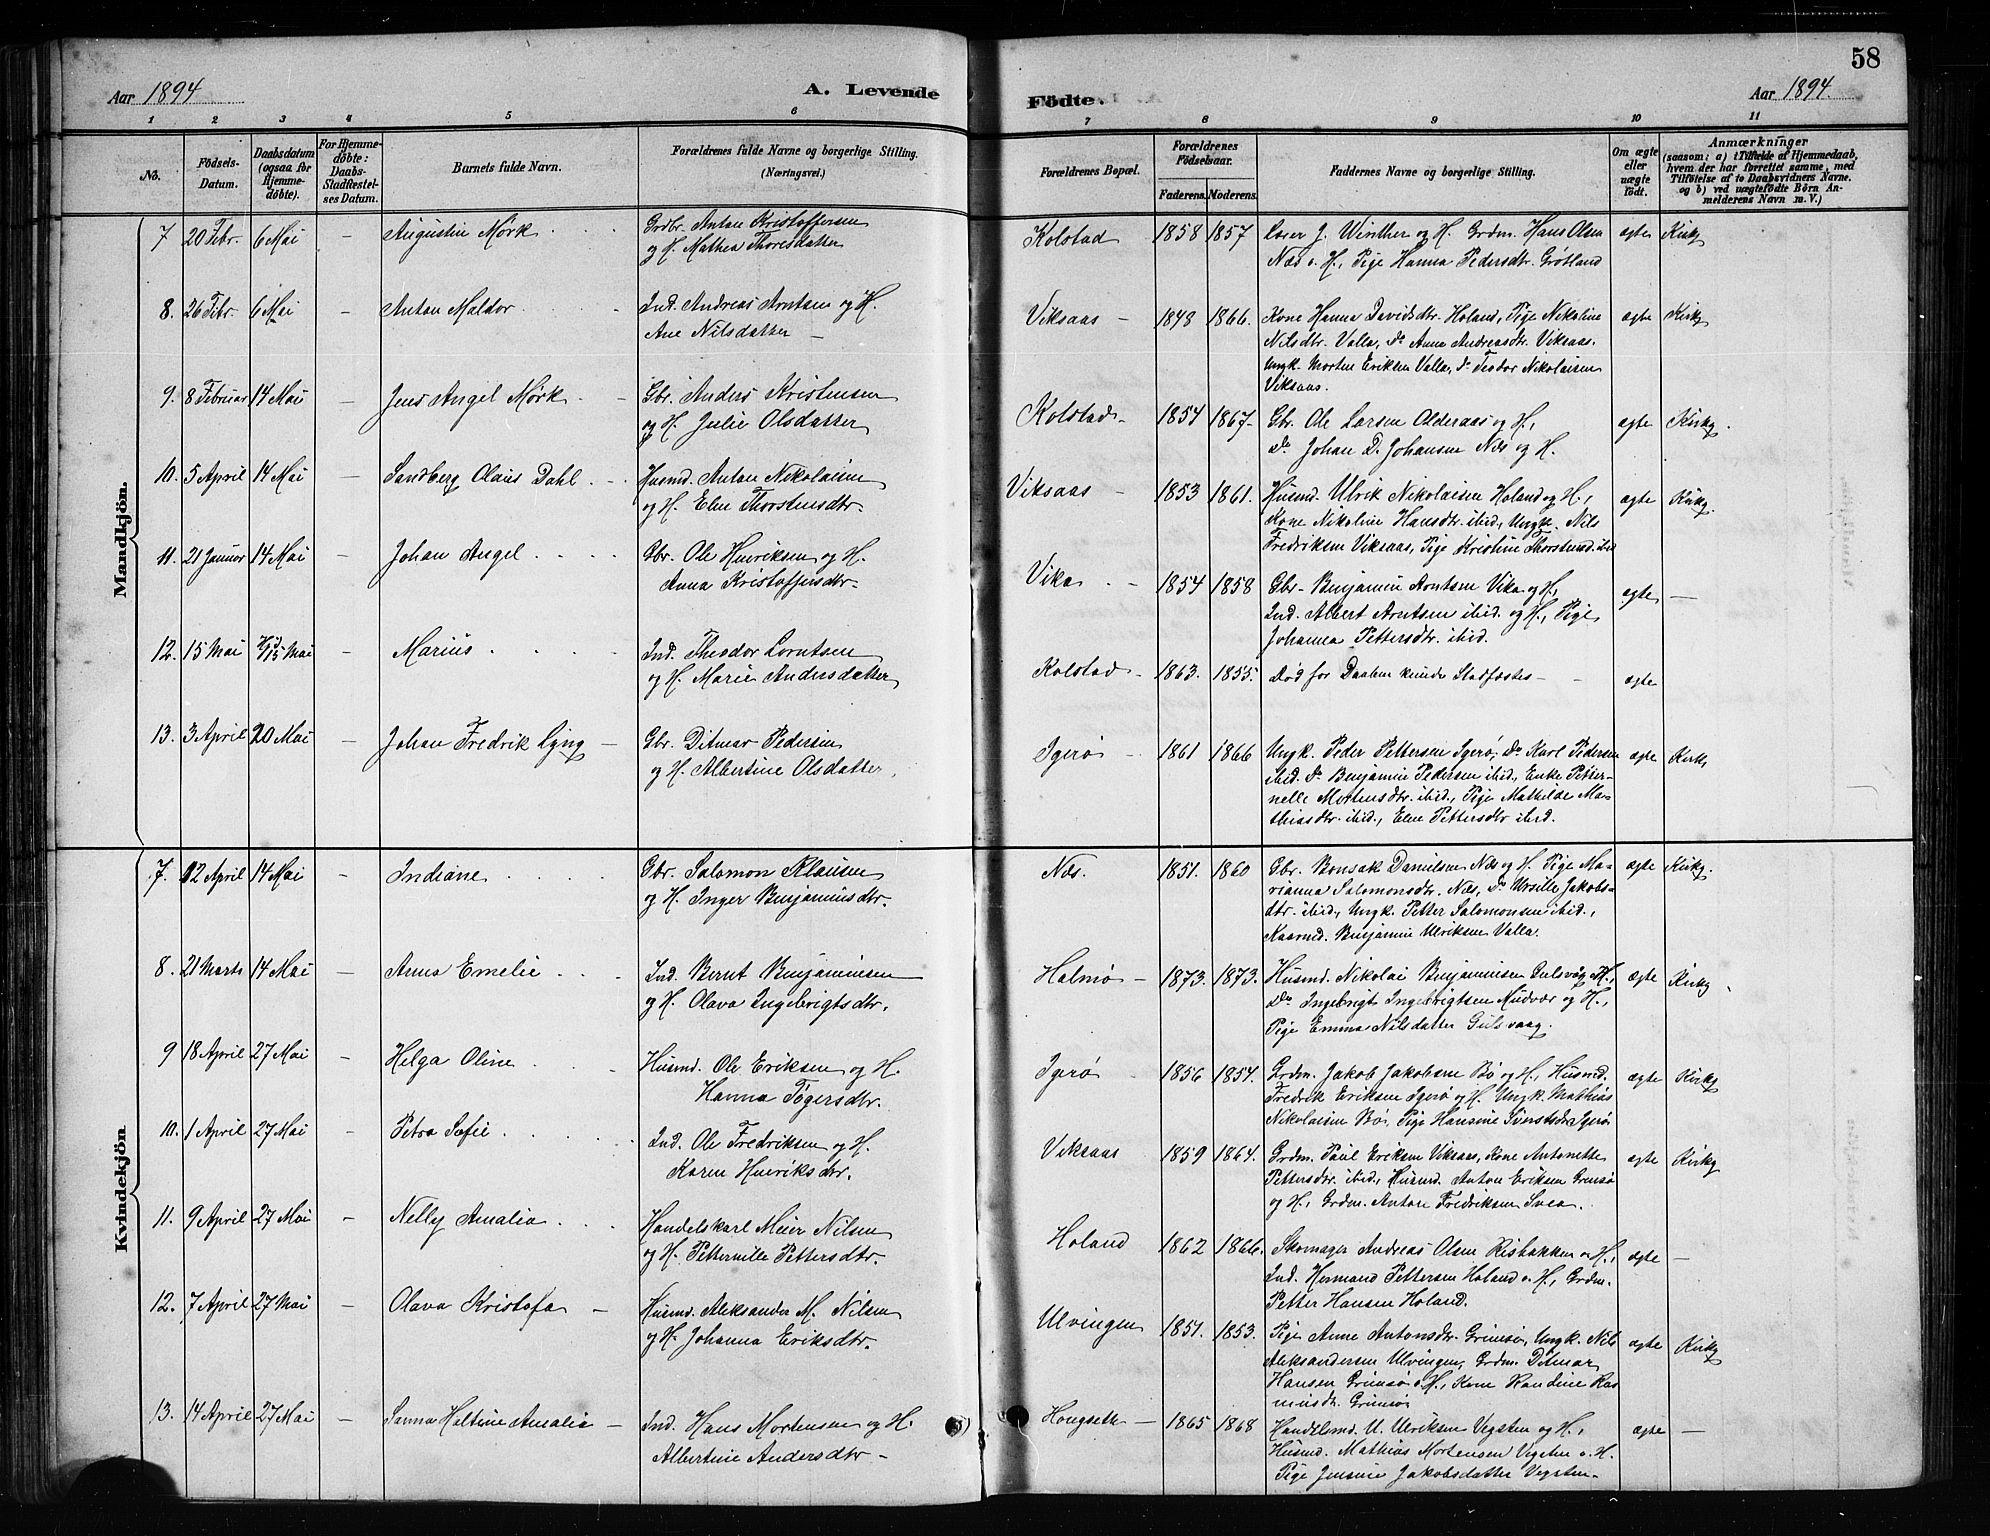 58
Aar 1894
A. Levende
Födte.
Aar 1894.
1 2 3 4 5 6 7 8 9 10 11
No.
Födsels-Datum.
Daabsdatum (ogsaa for Hjemme-döbte).
For Hjemme-döbte: Daabs-Stadfæstel-ses Datum.
Barnets fulde Navn.
Forældrenes fulde Navne og borgerlige Stilling.
(Næringsvei.)
Forældrenes Bopæl.
Forældrenes Födselsaar.
Faderens. Moderens.
Faddernes Navne og borgerlige Stilling.
Om ægte eller uægte födt.
Anmærkninger
(saasom: a) i Tilfælde af Hjemmedaab,
hvem der har forrettet samme, med
Tilföielse af to Daabsvidners Navne,
og b) ved uægtefödte Börn An-
melderens Navn m. V.)
Mandkjön.
7 20 Febr. 6 Mai – Augustin Mörk Grdbr. Anton Kristoffersen
og H. Mathea Thoresdatter
Kolstad 1858 1857 Lærer J. Winther og H. Grdm. Hans Olsen
Næs o. H., Pige Hanna Pedersdtr. Grötland
ægte Kirkg
8. 26 Febr. 6 Mai – Anton Maldor Ind. Andreas Arntsen og H.
Ane Nilsdatter –
Viksaas – 1848 1866. Kone Hanna Davidsdtr. Holand, Pige Nikoline
Nilsdtr. Valla, Do Anna Andreasdtr. Viksaas.
Ungk. Morten Eriksen Valla, do Teodor Nikolaisen
Viksaas.
ægte Kirkg
9. 8 Februar 14 Mai – Jens Angel Mörk – Gbr. Anders Kristensen
og H. Julie Olsdatter
Kolstad – 1854 1867– Gbr. Ole Larsen Olderaas og H.,
Do Johan D. Johansen Næs og H.
ægte Kirkg.
10. 5 April 14 Mai – Sandberg Olaus Dahl Husmd. Anton Nikolaisen
og H. Elen Thorstensdtr.
Viksaas – 1853 1861. Husmd. Ulrik Nikolaisen Holand og H.,
Kone Nikoline Hansdtr. ibid., Ungk. Nils
Fredriksen Viksaas, Pige Kristine Thorstensd. ibid
ægte Kirkg.
11. 21 Januar 14 Mai – Johan Angel Gbr. Ole Henriksen og H.
Anna Kristoffersdtr.
Vika – 1854 1858 Gbr. Benjamin Arntsen Vika og H.,
Ind. Albert Arntsen ibid. og H., Pige
Johanna Pettersdtr. ibid.
ægte –
12. 15 Mai 15 Mai – Marius Ind. Theodor Lorntsen
og H. Marie Andersdatter
Kolstad – 1863. 1855. Död før Daaben kunde Stadfæstes –
ægte
13. 3 April 20 Mai – Johan Fredrik Lyng – Gbr. Ditmar Pedersen
og H. Albertine Olsdatter.
Igerö – 1861 1866 Ungk. Peder Pettersen Igerö, Do Karl Pedersen
ibid. Do Benjamin Pedersen ibid., Enke Petter-
nelle Mortensdtr. ibid., Pige Mathilde Ma-
thiasdtr. ibid., Elen Pettersdtr ibid.
ægte Kirkg
Kvindekjön
7. 12 April 14 Mai – Indiane Gbr. Salomon Klausen
og H. Inger Benjaminsdtr.
Næs. 1851. 1860 Gbr. Bonsak Danielsen Næs og H. Pige Ma-
rianna Salomonsdtr. Næs, Do Ursille Jakobs-
dtr. ibid., Ungk. Petter Salomonsen ibid.,
Kaarmd. Benjamin Ulriksen Valla.
ægte Kirkg.
8. 21 Marts 14 Mai – Anna Emelie Ind. Bernt Benjaminsen
og H. Olava Ingebrigtsdtr.
Halmö – 1873. 1873. Husmd. Nikolai Benjaminsen Gulsvåg o. H.,
Do Ingebrigt Ingebrigtsen Hudvær og H.,
Pige Emma Nilsdatter Gulsvaag.
ægte Kirkg
9 18 April 27 Mai – Helga Oline Husmd. Ole Eriksen og H.
Hanna Tögersdtr.
Igerö – 1856 1854. Grdm. Jakob Jakobsen Bö og H., Husmd.
Fredrik Eriksen Igerö og H. Ungk. Mathias
Nikolaisen Bö, Pige Hansine Sivertsdtr Igerö
ægte Kirkg
10. 1 April 27 Mai – Petra Sofie Ind. Ole Fredriksen og H.
Karen Henriksdtr.
Viksaas 1859 1864. Grdm. Paul Eriksen Viksaas, Kone Antonette
Pettersdtr. ibid., Husmd. Anton Eriksen Grimsö
og H., Grdm. Anton Fredriksen Svea.
ægte Kirkg
11. 9 April 27 Mai – Nelly Amalia Handelskarl Meier Nilsen
og H. Petternille Pettersdtr.
Holand 1862 1866. Skomager Andreas Olsen Risbakken o. H.,
Ind. Hermand Pettersen Holand o. H., Grdm.
Petter Hansen Holand.
ægte –
12. 7 April 27 Mai – Olava Kristofa – Husmd. Aleksander M. Nilsen
og H. Johanna Eriksdtr.
Ulvingen 1851. 1853. Pige Anne Antonsdtr. Grimsö, Ungk. Nils
Aleksandersen Ulvingen, Grdm. Ditmar
Hansen Grimsö o. H., Kone Randine Ras-
musdtr. Grimsö
ægte Kirkg
13. 14 April 27 Mai – Sanna Haltine Amalia – Ind. Hans Mortensen og H.
Albertine Andersdtr –
Hongseth – 1865 1868 Handelsmd. U. Ulriksen Vegsten og H.,
Husmd. Mathias Mortensen Vegsten o. H.
Pige Jensine Jakobsdatter Vegsten.
ægte –